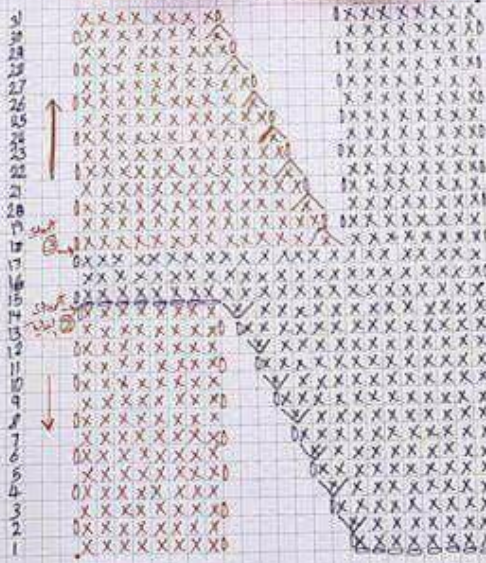 31
30
29
28
27
26
25
24
23
22
21
20
19
start
18
17
16
15
start
14
13
12
11
10
9
8
7
6
5
4
3
2
1